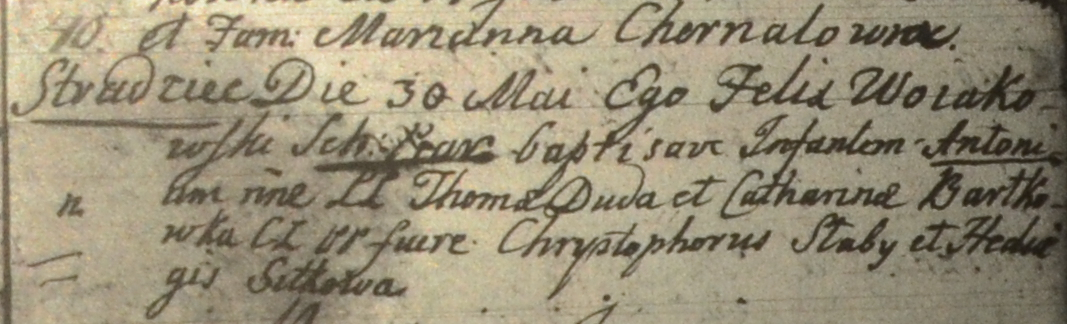 et Fam: Marianna Chernalowna.
Strudziec Die 30 Mai Ego Felix Woiako-
wski Sch: baptisavi Infantem Antoni-
um nine LL Thomæ Duda et Catharinæ Bartko-
wka CI pp fuere Chrystophorus Staby et Hedvi
gis Sitkowa